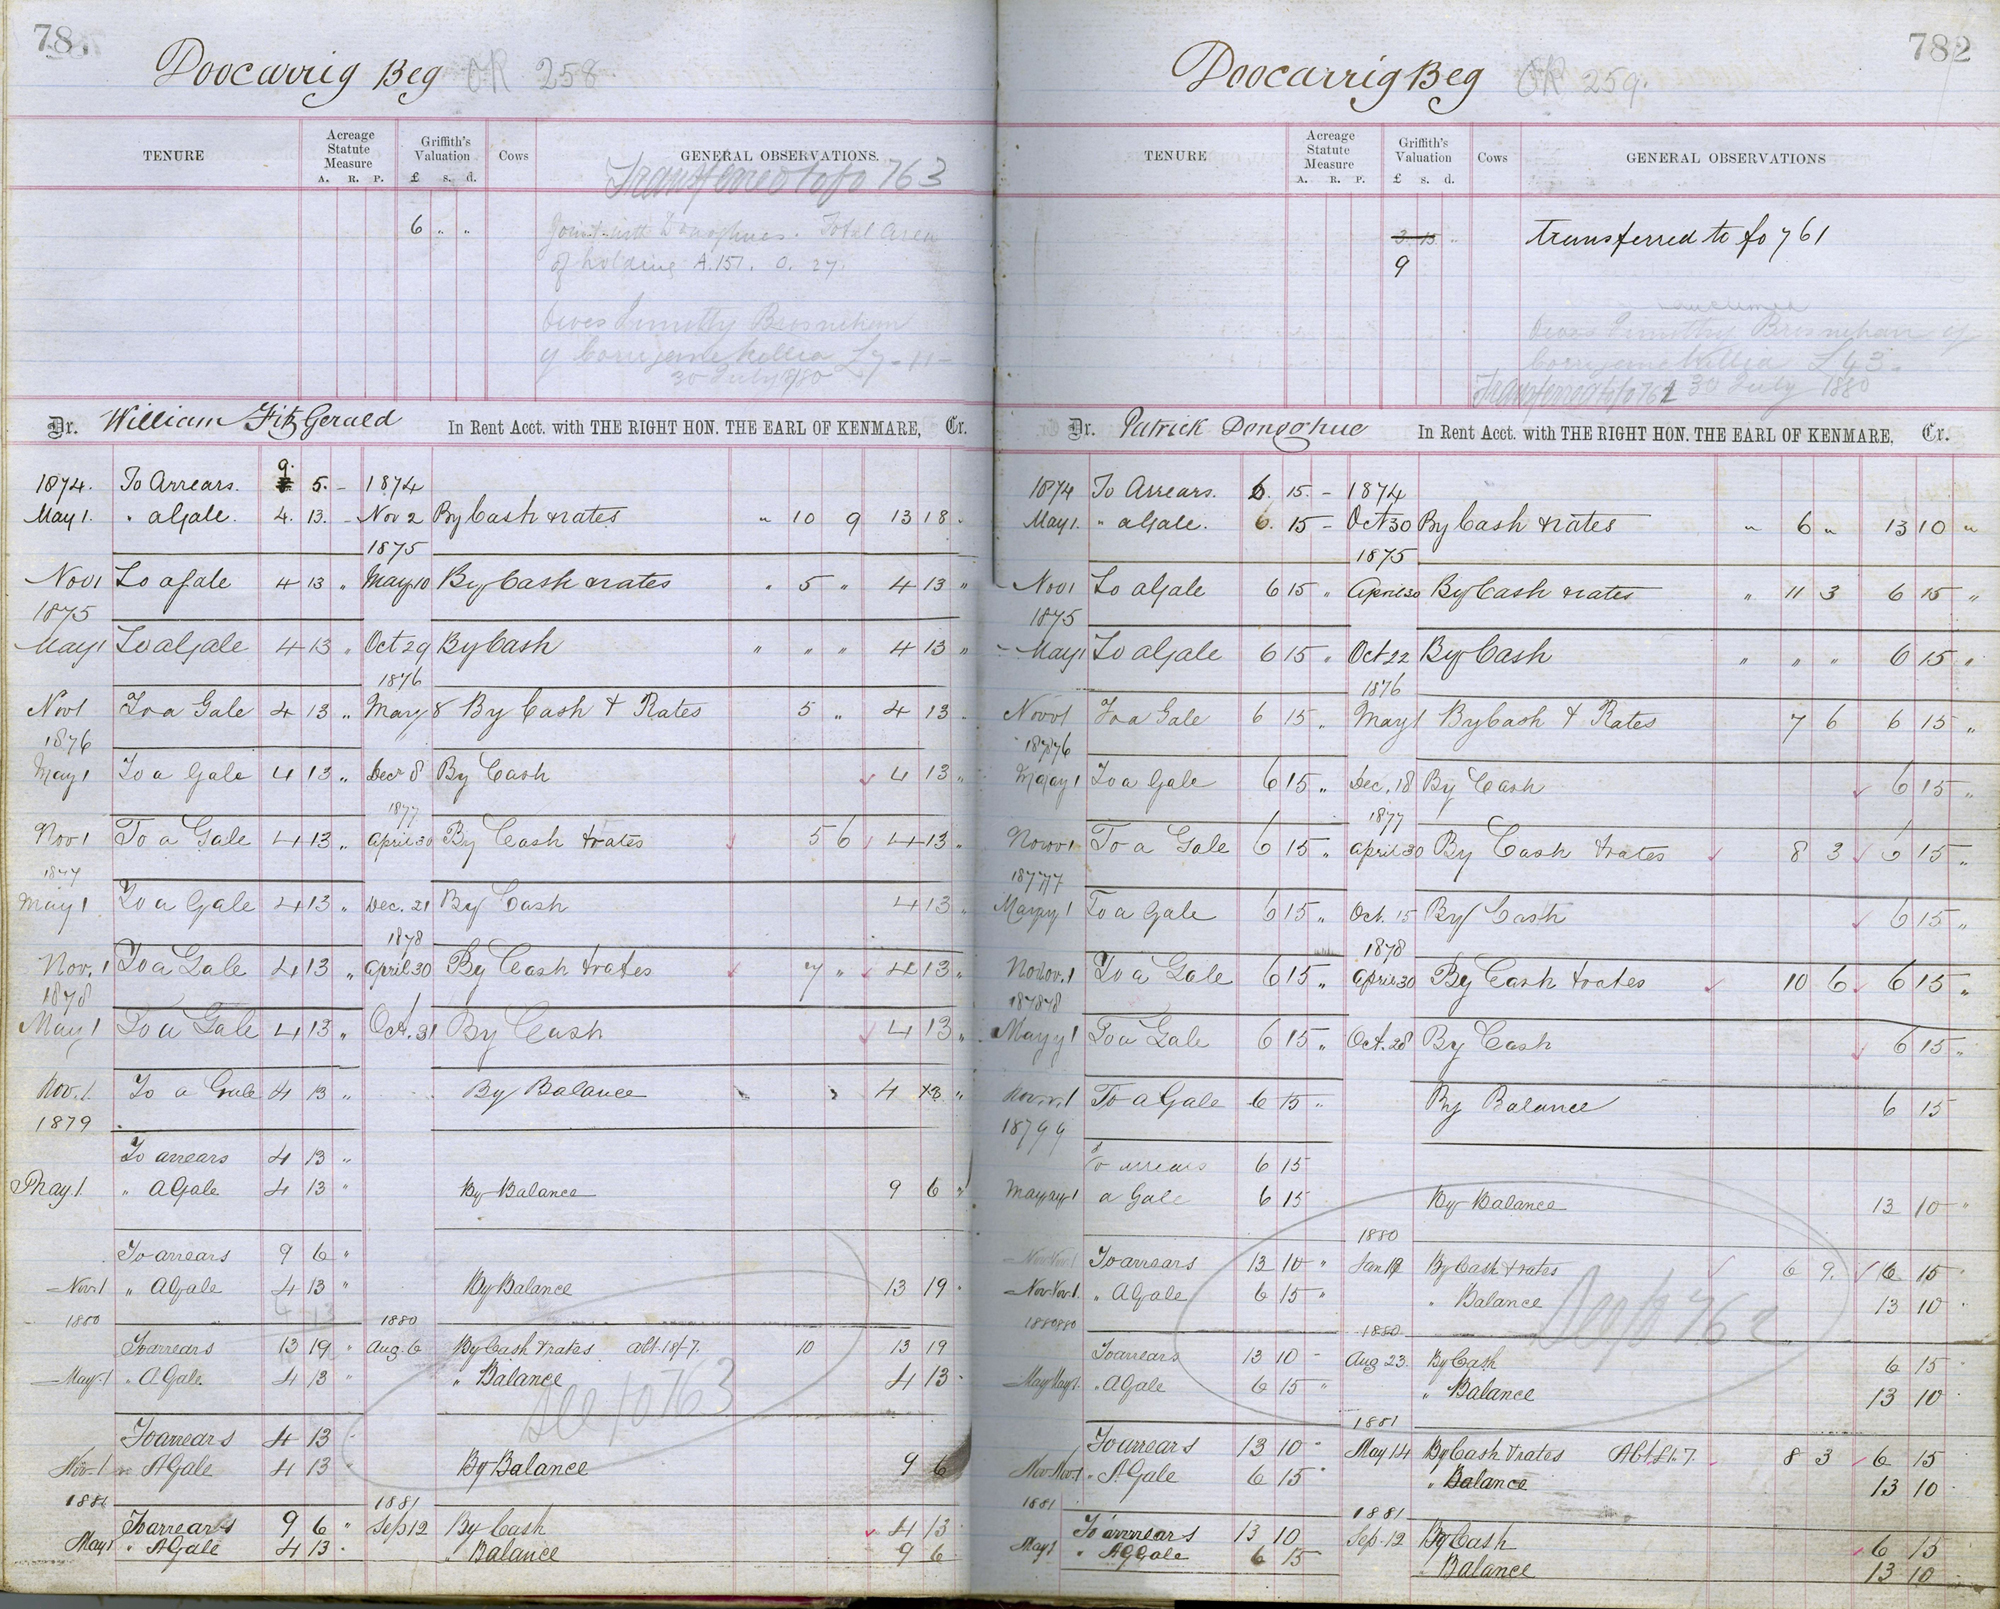 78
Doocarrig Beg OR 258
TENURE Acreage Statute Measure Griffith's Valuation Cows GENERAL OBSERVATIONS.
A. R. P. £ s. d.
Transferred to fo 763
6 " "
Joint with Donoghues. Total area
of holding A. 151. 0. 27.
owes Timothy Bresnihan
of £7-11-
30 July 1880
Dr. William FitzGerald In Rent Acct. with THE RIGHT HON. THE EARL OF KENMARE, Cr.
1874. To Arrears. 9. 5. - 1874
May 1. " a Gale. 4. 13. - Nov 2 By Cash & rates " 10 9 13 18 "
1875
Nov 1 To a Gale 4 13 " May 10 By Cash & rates " 5 " 4 13 "
1875
May 1 To a Gale 4 13 " Oct 29 By Cash " " " 4 13 "
1876
Nov 1 To a Gale 4 13 " May 8 By Cash & Rates 5 " 4 13 "
1876
May 1 To a Gale 4 13 " Decr 8 By Cash 4 13 "
1877
Nov 1 To a Gale 4 13 " April 30 By Cash & rates 5 6 4 13 "
1877
May 1 To a Gale 4 13 " Dec. 21 By Cash 4 13 "
1878
Nov. 1 To a Gale 4 13 " April 30 By Cash & rates 7 " 4 13 "
1878
May 1 To a Gale 4 13 " Oct. 31 By Cash 4 13 "
Nov. 1. To a Gale 4 13 " By Balance 4 13 "
1879
To arrears 4 13 "
May 1. " A Gale 4 13 " By Balance 9 6 "
To arrears 9 6 "
Nov 1 " A Gale 4 13 " By Balance 13 19 "
1880 1880
To arrears 13 19 " Aug. 6 By Cash & rates 10 13 19
May 1 " A Gale 4 13 " " Balance 4 13 "
See fo 763
To arrears 4 13 "
Nov. 1 " A Gale 4 13 " By Balance 9 6
1881 1881
To arrears 9 6 " Sep 12 By Cash 4 13
May 1 " A Gale 4 13 " " Balance 9 6
782
Doocarrig Beg OR 259.
TENURE Acreage Statute Measure Griffith's Valuation Cows GENERAL OBSERVATIONS
A. R. P. £ s. d.
3 15 "
transferred to fo 761
9
owes Timothy Bresnihan of
£43.
Transferred to fo 762 30 July 1880
Dr. Patrick Donoghue In Rent Acct. with THE RIGHT HON. THE EARL OF KENMARE, Cr.
1874 To Arrears. 6. 15. - 1874
May 1. " a Gale. 6. 15 - Oct 30 By Cash & rates " 6 " 13 10 "
1875
Nov 1 To a Gale 6 15 " April 30 By Cash & rates " 11 3 6 15 "
1875
May 1 To a Gale 6 15 " Oct 22 By Cash " " " 6 15 "
1876
Nov 1 To a Gale 6 15 " May 1 By Cash & Rates 7 6 6 15 "
1876
May 1 To a Gale 6 15 " Dec. 18 By Cash 6 15 "
1877
Nov 1 To a Gale 6 15 " April 30 By Cash & rates 8 3 6 15 "
1877
May 1 To a Gale 6 15 " Oct. 15 By Cash 6 15 "
1878
Nov. 1 To a Gale 6 15 " April 30 By Cash & rates 10 6 6 15 "
1878
May 1 To a Gale 6 15 " Oct. 28 By Cash 6 15 "
Nov. 1 To a Gale 6 15 " By Balance 6 15
1879
To arrears 6 15
May 1 a Gale 6 15 By Balance 13 10 "
1880
To arrears 13 10 " Jan By Cash & rates 6 9. 6 15 "
Nov. 1. " A Gale 6 15 " " Balance 13 10 "
See fo 762
1880 1880
To arrears 13 10 " Aug 23. By Cash 6 15 "
May 1. " A Gale 6 15 " " Balance 13 10
1881
To arrears 13 10 " May 14 By Cash & rates 8 3 6 15
Nov. 1 " A Gale 6 15 " " Balance 13 10
1881 1881
To arrears 13 10 Sep. 12 By Cash 6 15
May 1 " A Gale 6 15 Balance 13 10